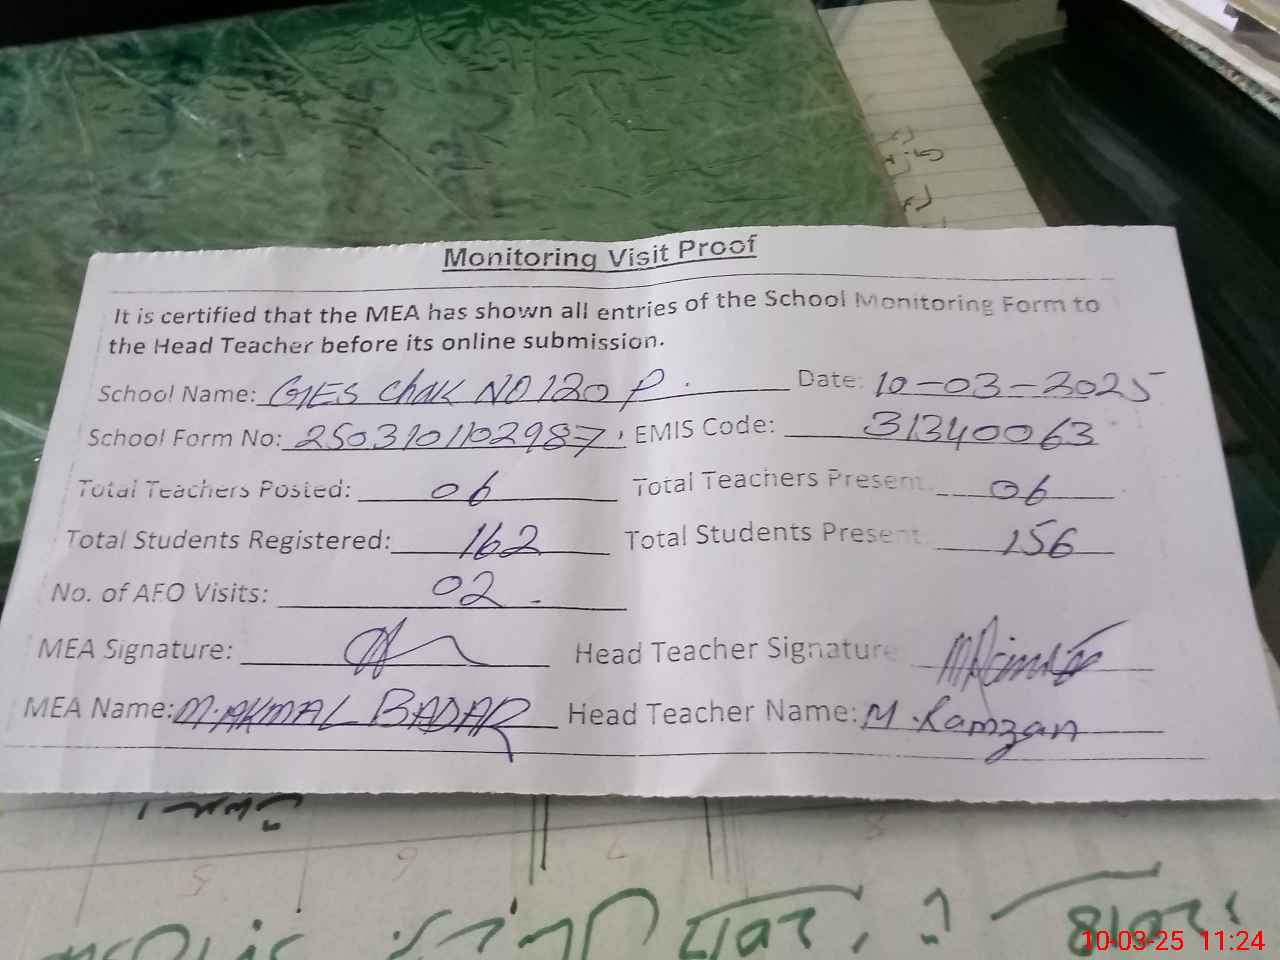 Monitoring Visit Proof
It is certified that the MEA has shown all entries of the School Monitoring Form to
the Head Teacher before its online submission.
School Name: GES Chak NO 120 P. Date: 10-03-2025
School Form No: 2503101102987, EMIS Code: 31340063
Total Teachers Posted: 06 Total Teachers Present: 06
Total Students Registered: 162 Total Students Present: 156
No. of AEO Visits: 02
MEA Signature: Head Teacher Signature
MEA Name: M. AKMAL BADAR Head Teacher Name: M. Ramzan
5 6 7 8
10-03-25 11:24